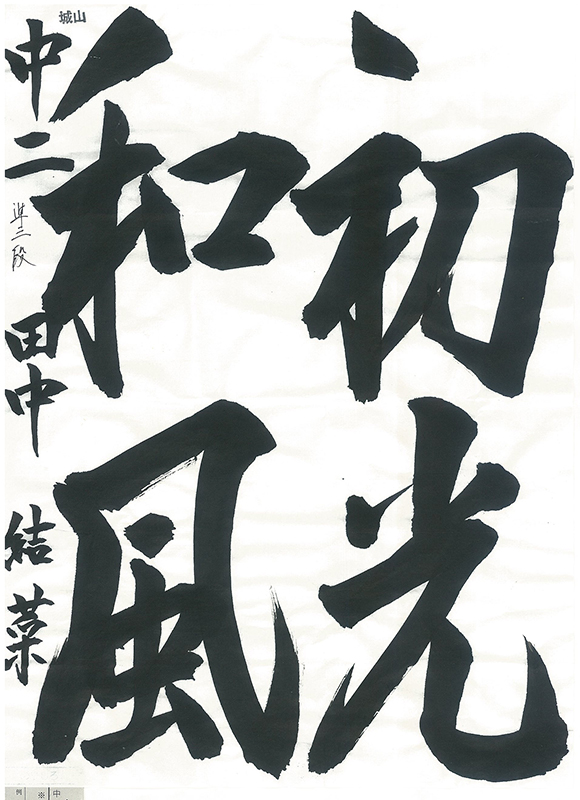 初光
和風
中二 準三段 田中 結菜
城山
例 ※ 中